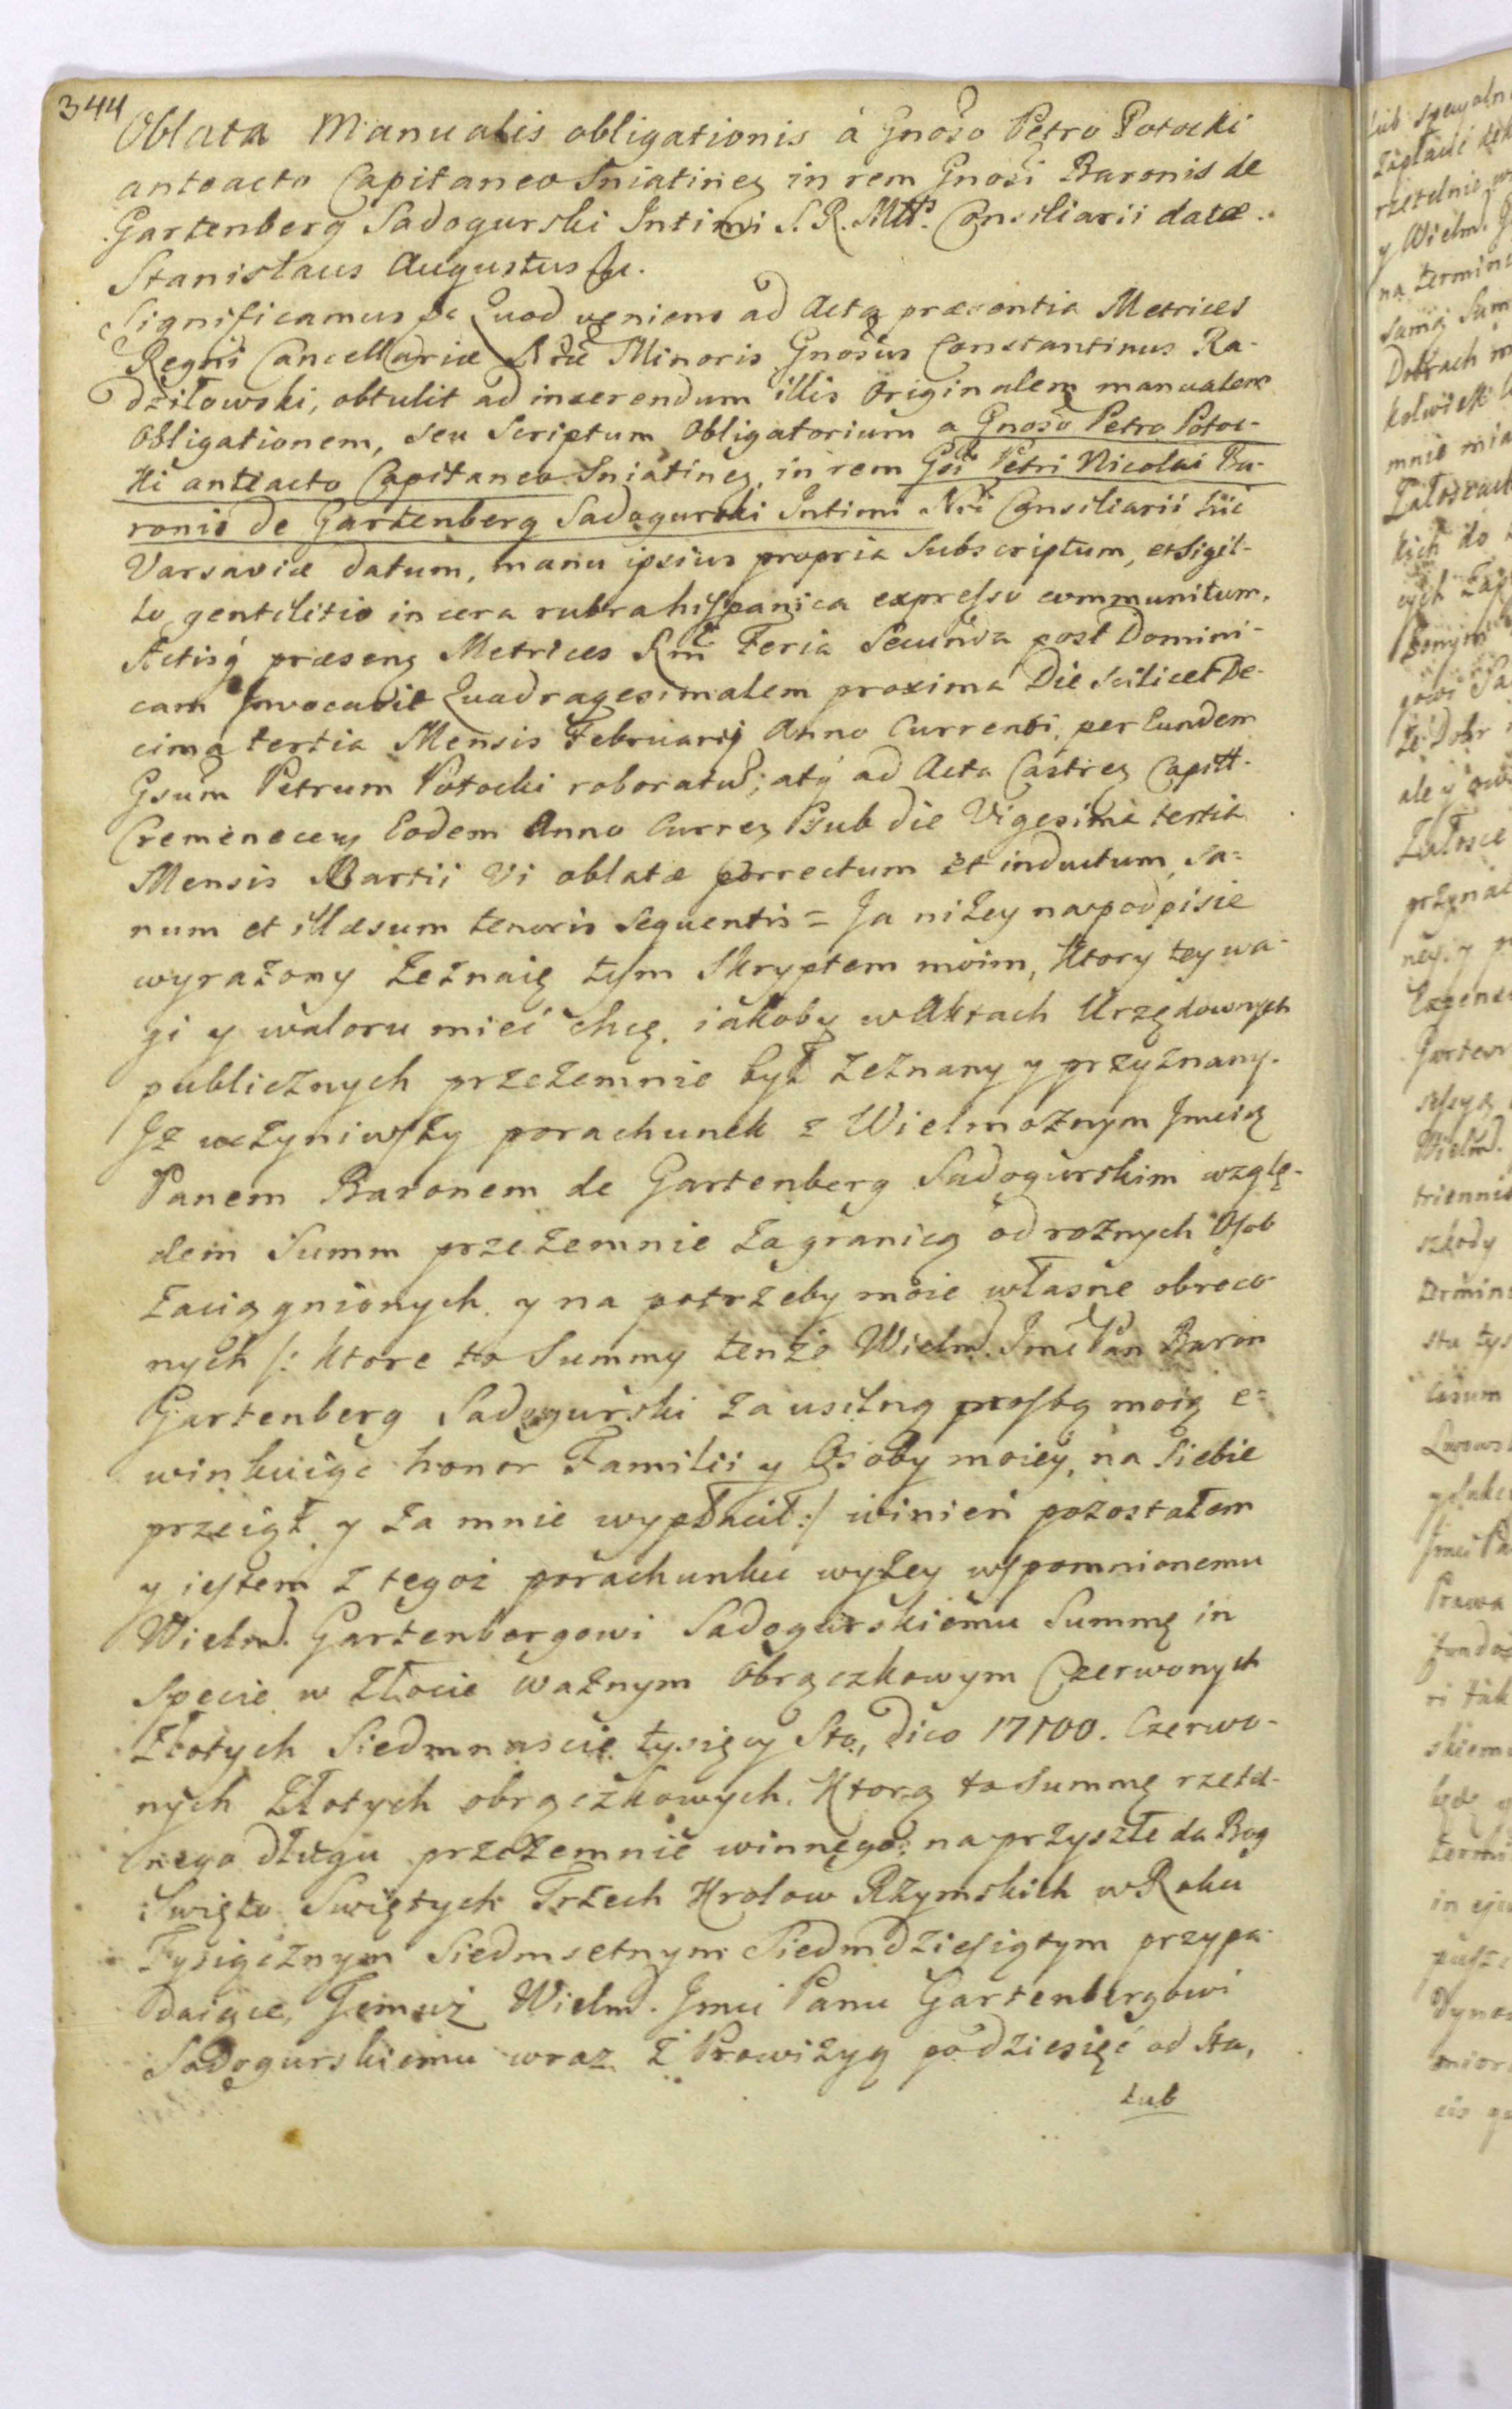 344
Oblata Manualis obligationis à Gnoso Petro Potocki
anteacto Capitaneo Sniatineg in rem Gnosi Baronis de
Gartenberg Sadogurski Intimi S. R. Mtts. Consiliarii datæ.
Stanislaus Augustus &c.
Significamus &c Quod veniens ad Acta præsentia Metrices
Regni Cancellariæ Nræ Minoris Gnosus Constantinus Ra-
dziłowski, obtulit ad inserendum illis Originalem manualem
Obligationem, seu Scriptum Obligatorium a Gnoso Petro Potoc-
ki anteacto Capitaneo Sniatineg, in rem Gsi Petri Nicolai Ba-
ronis de Gartenberg Sadogurski Intimi Nri Consiliarii hic
Varsaviæ datum, manu ipsius propria Subscriptum, et Sigil-
lo gentilitio in cera rubra hispanica expresso communitum.
Actisq præseng Metrices Rni Feria Secunda post Domini-
cam Invocavit Quadragesimalem proxima Die scilicet De-
cima tertia Mensis Februarij Anno Currenti, per Eundem
Gsum Petrum Potocki roboratu; atq ad Acta Castreg Capitt.
Cremeneceg Eodem Anno Curreg Sub die Vigesima tertia
Mensis Martii Vi oblatæ porrectum et inductum, sa-
num et illæsum tenoris sequentis = Ja niżey na podpisie
wyrażony Zeznaię tym Skryptem moim, ktory tey wa-
gi y waloru mieć chcę, iakoby w Aktach Urzędownych
publicznych przezemnie był zeznany y przyznany.
Iż uczyniwszy porachunek z Wielmożnym Jmcią
Panem Baronem de Gartenberg Sadogurskim wzglę-
dem Summ przezemnie zagranicą od rożnych Osob
zaciągnionych, y na potrzeby moie własne obroco-
nych /: ktore to Summy tenże Wielm. Jmć Pan Baron
Gartenberg Sadogurski za usilną prosbą moią e-
winkuiąc honor Familii y Osoby moiey, na siebie
przeiął, y za mnie wypłacił :/ winien pozostałem
y iestem z tegoż porachunku wyżey wspomnionemu
Wielm. Gartenbergowi Sadogurskiemu Summę in
Specie w złocie ważnym Obrączkowym Czerwonych
Złotych Siedmnascie tysięcy Sto, dico 17100. Czerwo-
nych Złotych obrączkowych. Ktorą to Summę rzetel-
nego długu przezemnie winnego: na przyszłe da Bog
Swięto Swiętych Trzech Krolow Rzymskich w Roku
Tysiącznym Siedmsetnym Siedmdziesiątym przypa-
daiące, Temuż Wielm. Jmci Panu Gartenbergowi
Sadogurskiemu wraz z Prowizyą po dziesięć od Sta,
lub